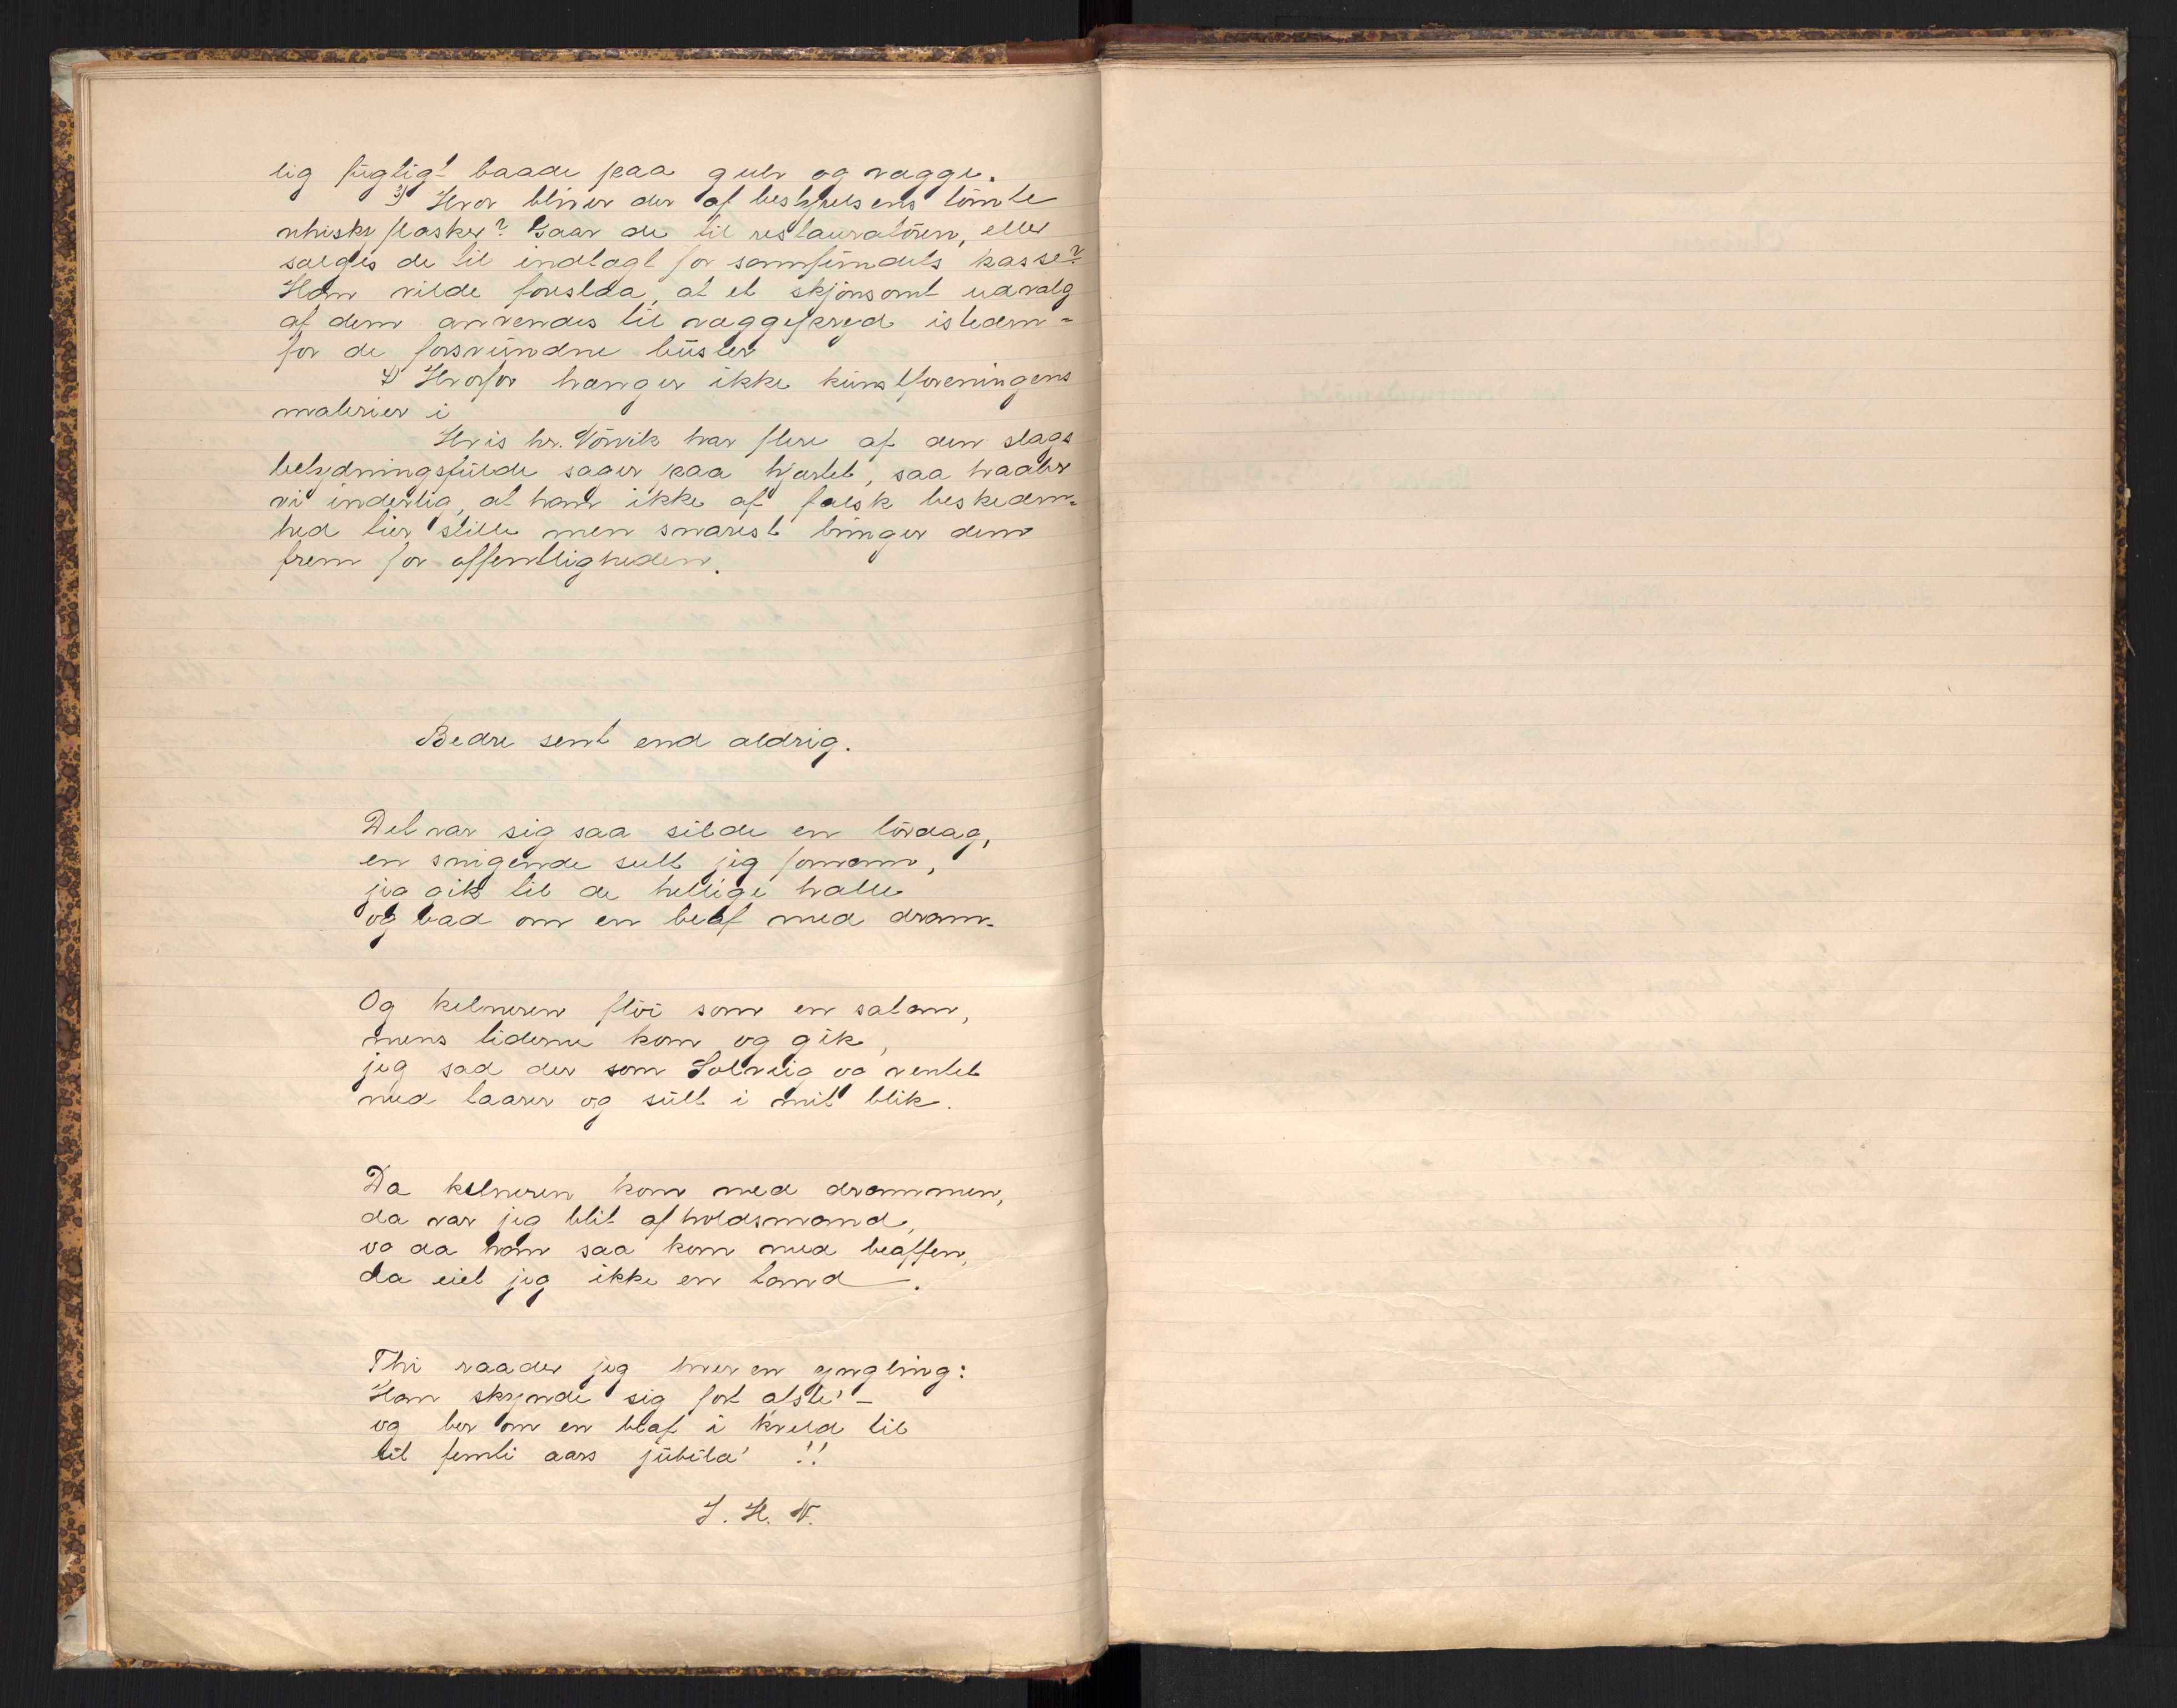 lig fugtigt baade paa gulv og vægge.
3) Hvor bliver der af bestyrelsens tömte
whisky flasker? Gaar de til restauratören, eller
sælges de til indtægt for samfundets kasse?
Han vilde foreslaa, at et skjönsomt udvalg
af dem anvendes til væggepryd isteden-
for de forsvundne büster
4) Hvorfor hænger ikke kunstforeningens
malerier i
Hvis hr. Vörvik har flere af den slags
betydningsfulde sager paa hjertet, saa haaber
vi inderlig, at han ikke af falsk beskeden-
hed tier stille men snarest bringer dem
frem for offentligheden.
Bedre sent end aldrig.
Det var sig saa silde en lördag,
en snigende sult jeg fornam,
jeg gik til de hellige halle
og bad om en beaf med dram.
Og kelneren flöi som en satan,
mens tiderne kom og gik,
jeg sad der som Solveig og ventet
med taarer og sült i mit blik.
Da kelneren kom med drammen,
da var jeg blit afholdsmand,
og da han saa kom med beaffen,
da eiet jeg ikke en tand.
Thi raader jeg hver en yngling:
Han skynde sig fort afste' -
og ber om en beaf i kveld til
til femti aars jübilæ' !!
J. H. V.